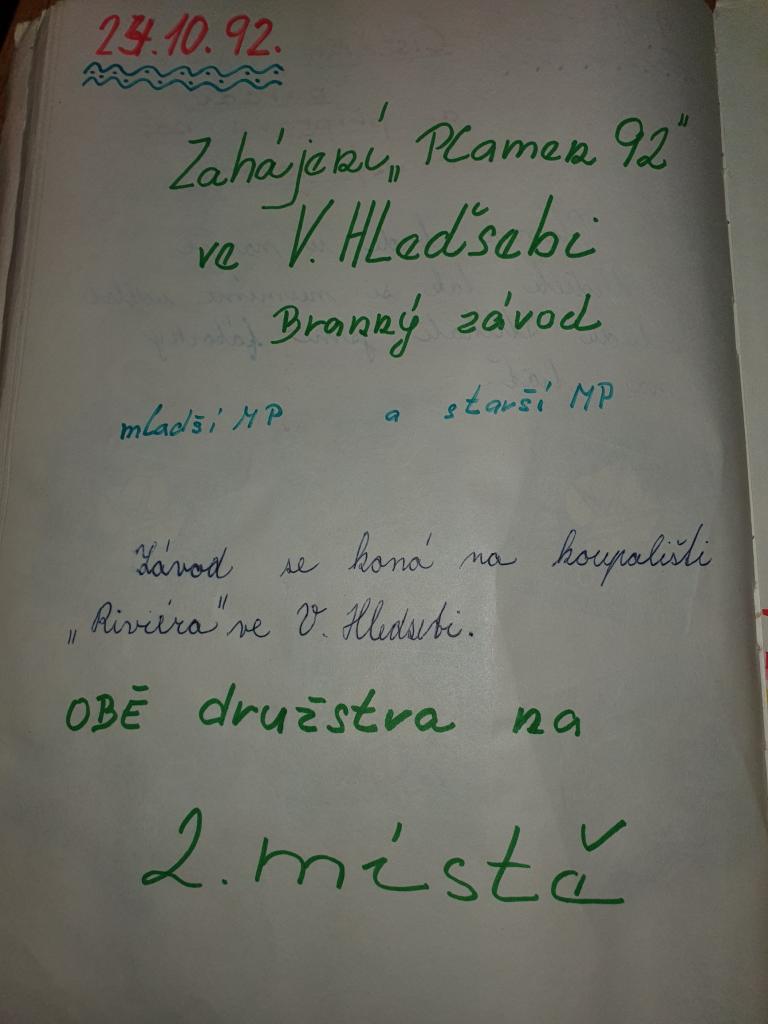 24.10.92.
Zahájení „Plamen 92"
ve V. Hledšebi
Branný závod
mladší MP a starší MP
Závod se koná na koupališti
„Riviéra" ve V. Hledsebi.
OBĚ družstva na
2. místě